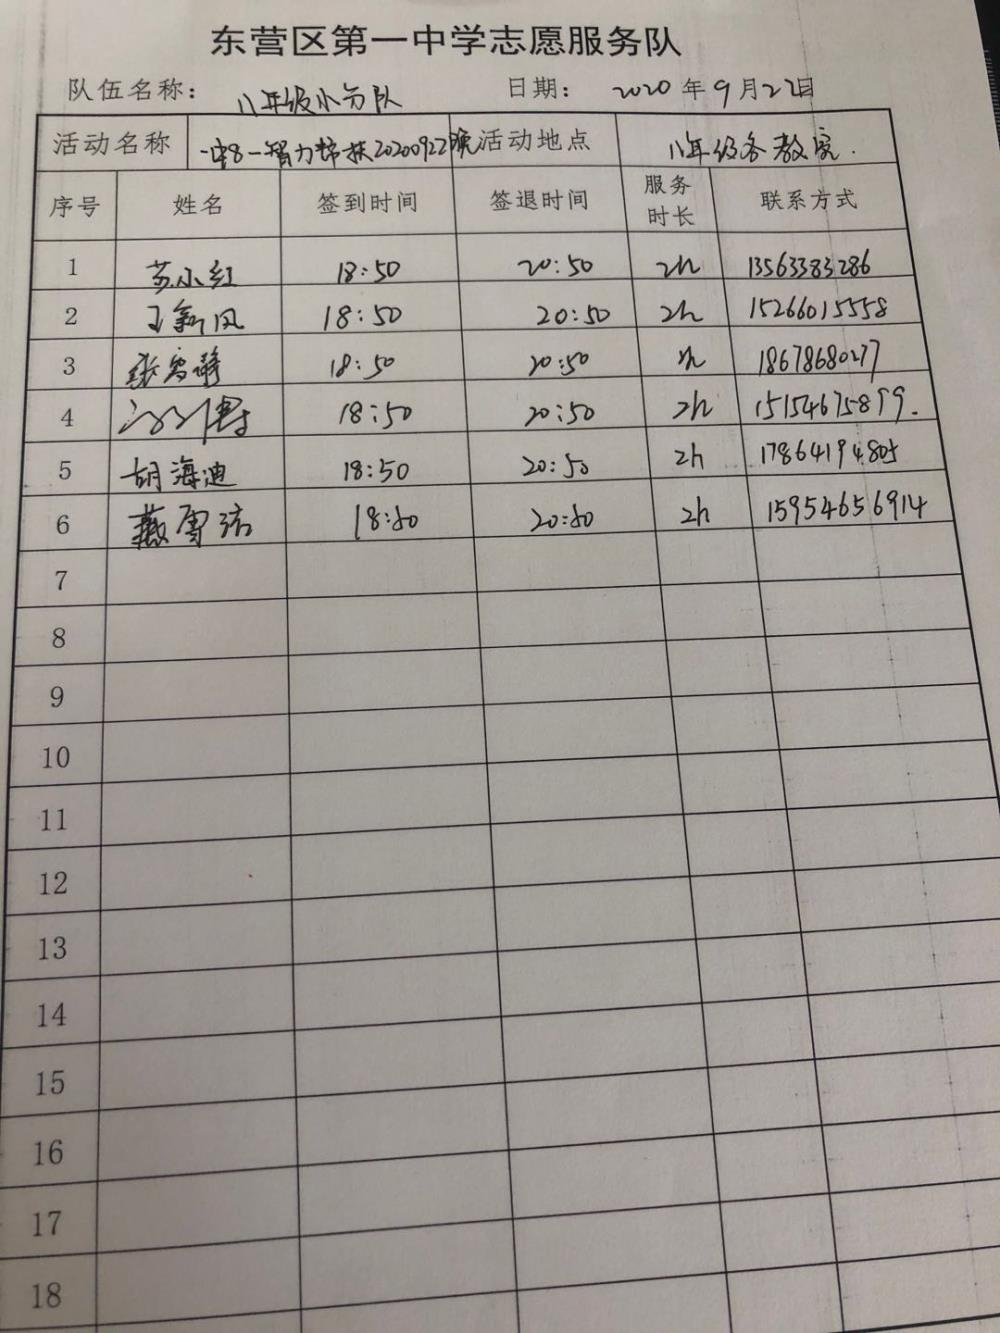 东营区第一中学志愿服务队
队伍名称： 八年级小分队 日期： 2020 年 9 月 22 日
活动名称 一中8一智力帮扶20200922晚 活动地点 八年级各教室.
序号 姓名 签到时间 签退时间 服务时长 联系方式
1 苏小红 18:50 20:50 2h 13563383286
2 王新风 18:50 20:50 2h 15266015558
3 张雪静 18:50 20:50 2h 18678680277
4 18:50 20:50 2h 15154675899.
5 胡海迪 18:50 20:50 2h 17864194805
6 燕雪 18:50 20:50 2h 15954656914
7
8
9
10
11
12
13
14
15
16
17
18